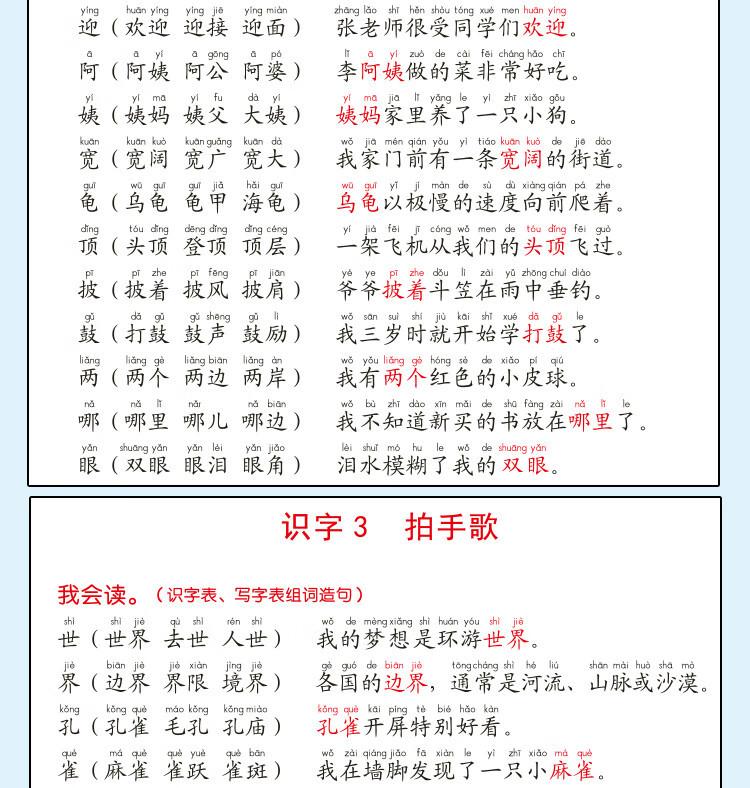 yíng huān yíng yíng jiē yíng miàn zhāng lǎo shī hěn shòu tóng xué men huān yíng
迎（欢迎 迎接 迎面） 张老师很受同学们欢迎。
ā ā yí ā gōng ā pó lǐ ā yí zuò de cài fēi cháng hǎo chī
阿（阿姨 阿公 阿婆） 李阿姨做的菜非常好吃。
yí yí mā yí fu dà yí yí mā jiā lǐ yǎng le yì zhī xiǎo gǒu
姨（姨妈 姨父 大姨） 姨妈家里养了一只小狗。
kuān kuān kuò kuān guǎng kuān dà wǒ jiā mén qián yǒu yì tiáo kuān kuò de jiē dào
宽（宽阔 宽广 宽大） 我家门前有一条宽阔的街道。
guī wū guī guī jiǎ hǎi guī wū guī yǐ jí màn de sù dù xiàng qián pá zhe
龟（乌龟 龟甲 海龟） 乌龟以极慢的速度向前爬着。
dǐng tóu dǐng dēng dǐng dǐng céng yí jià fēi jī cóng wǒ men de tóu dǐng fēi guò
顶（头顶 登顶 顶层） 一架飞机从我们的头顶飞过。
pī pī zhe pī fēng pī jiān yé ye pī zhe dǒu lì zài yǔ zhōng chuí diào
披（披着 披风 披肩） 爷爷披着斗笠在雨中垂钓。
gǔ dǎ gǔ gǔ shēng gǔ lì wǒ sān suì shí jiù kāi shǐ xué dǎ gǔ le
鼓（打鼓 鼓声 鼓励） 我三岁时就开始学打鼓了。
liǎng liǎng gè liǎng biān liǎng àn wǒ yǒu liǎng gè hóng sè de xiǎo pí qiú
两（两个 两边 两岸） 我有两个红色的小皮球。
nǎ nǎ lǐ nǎ r nǎ biān wǒ bù zhī dào xīn mǎi de shū fàng zài nǎ lǐ le
哪（哪里 哪儿 哪边） 我不知道新买的书放在哪里了。
yǎn shuāng yǎn yǎn lèi yǎn jiǎo lèi shuǐ mó hu le wǒ de shuāng yǎn
眼（双眼 眼泪 眼角） 泪水模糊了我的双眼。
识字3 拍手歌
我会读。（识字表、写字表组词造句）
shì shì jiè qù shì rén shì wǒ de mèng xiǎng shì huán yóu shì jiè
世（世界 去世 人世） 我的梦想是环游世界。
jiè biān jiè jiè xiàn jìng jiè gè guó de biān jiè tōng cháng shì hé liú shān mài huò shā mò
界（边界 界限 境界） 各国的边界，通常是河流、山脉或沙漠。
kǒng kǒng què máo kǒng kǒng miào kǒng què kāi píng tè bié hǎo kàn
孔（孔雀 毛孔 孔庙） 孔雀开屏特别好看。
què má què què yuè què bān wǒ zài qiáng jiǎo fā xiàn le yì zhī xiǎo má què
雀（麻雀 雀跃 雀斑） 我在墙脚发现了一只小麻雀。